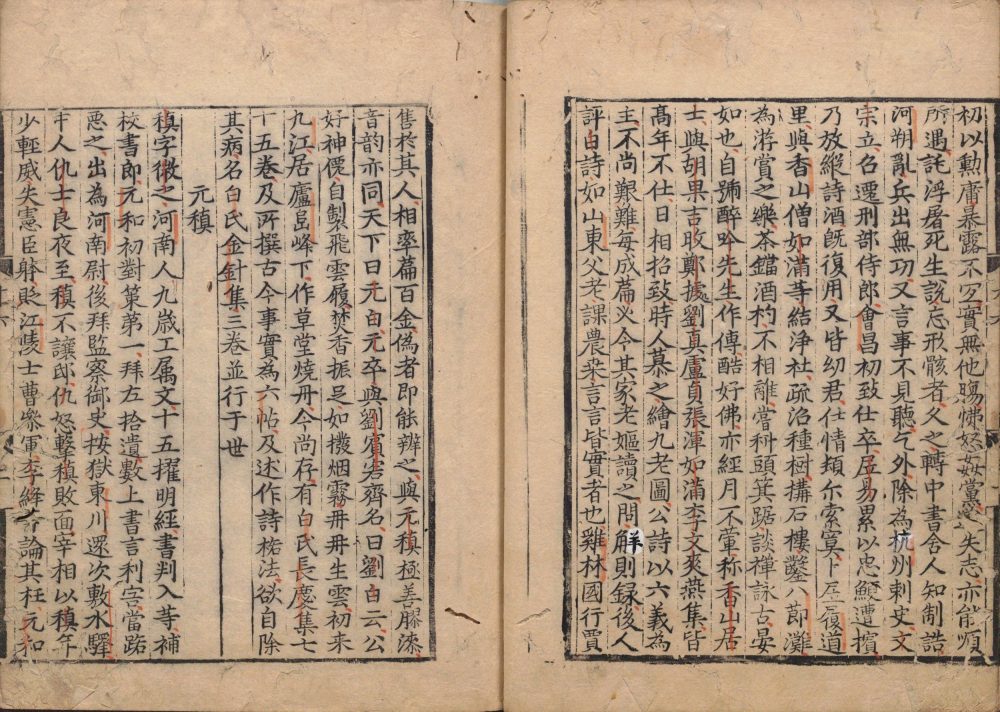 初以勳庸暴露不冝實無他腸怫怒姦黨遂失志亦能順
所遇託浮屠死生說忘形骸者久之轉中書舍人知制誥
河朔亂兵出無功又言事不見聽乞外除為杭州刺史文
宗立召遷刑部侍郎會昌初致仕卒居易累以忠鯁遭擯
乃放縱詩酒既復用又皆幼君仕情頗尒索寞卜居履道
里與香山僧如滿等結浄社疏沼種樹構石樓鑿八節灘
為游賞之樂茶鐺酒杓不相離嘗科頭箕踞談禪詠古晏
如也自號醉吟先生作傳酷好佛亦經月不葷称香山居
士與胡杲吉旼鄭據劉真盧貞張渾如滿李文爽燕集皆
髙年不仕日相招致時人慕之繪九老圖公詩以六義為
主不尚艱難每成篇必令其家老嫗讀之問解則録後人
評白詩如山東父老課農桒言言皆實者也雞林國行賈
售於其人相率篇百金偽者即能辨之與元稹極善膠漆
音韵亦同天下曰元白元卒與劉賔客齊名曰劉白云公
好神僊自製飛雲履焚香振足如撥烟霧冉冉生雲初来
九江居廬峯下作草堂燒丹今尚存有白氏長慶集七
十五卷及所撰古今事實為六帖及述作詩格法欲自除
其病名白氏金針集三卷並行于世
元稹
稹字微之河南人九歲工属文十五擢明經書判入等補
校書郎元和初對策第一拜左拾遺數上書言利害當路
惡之出為河南尉後拜監察御史按獄東川還次敷水驛
中人仇士良夜至稹不讓邸仇怒擊稹敗面宰相以稹年
少輕威失憲臣躰貶江陵士曹叅軍李絳論其枉元和